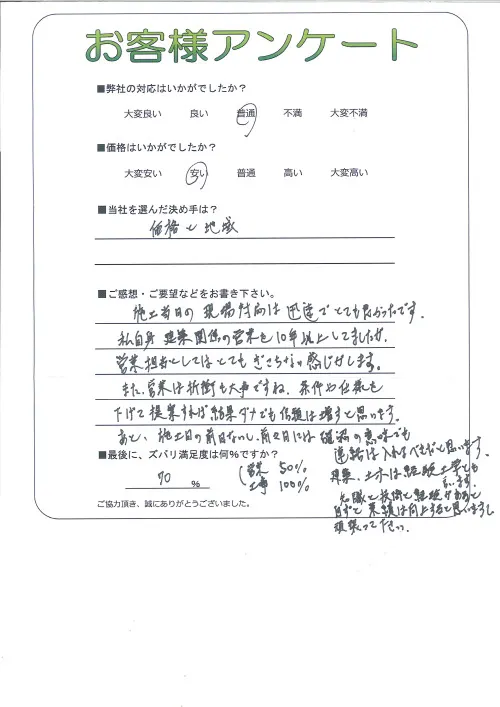 お客様アンケート
■弊社の対応はいかがでしたか？
大変良い 良い 普通 不満 大変不満
■価格はいかがでしたか？
大変安い 安い 普通 高い 大変高い
■当社を選んだ決め手は？
価格と地域
■ご感想・ご要望などをお書き下さい。
施工当日の現場対応は迅速でとても良かったです。
私自身建築関係の営業を10年以上してましたが、
営業担当としてはとてもぎこちない感じがします。
また、営業は折衝も大事ですね、条件や仕様を
下げて提案すれば結果ダメでも信頼は増すと思います。
あと、施工日の前日ないし、前々日には確認の意味でも
連絡は入れるべきだと思います。
■最後に、ズバリ満足度は何％ですか？
70 %
営業 50%
工事 100%
建築、土木は経験工学とも
言います。
知識と技術と経験があると
自ずと業績は向上すると思いますし
頑張って下さい。
ご協力頂き、誠にありがとうございました。